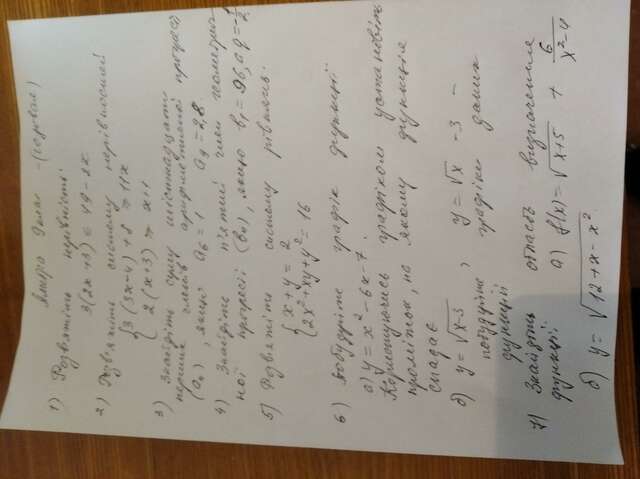 алгебра 9 клас - (годова)
1) Розв'яжіть нерівність:
3(2x+3) ≤ 49-2x
2) Розв'яжіть систему нерівностей
{3(3x-4)+8 ≥ 11x
2(x+3) ≥ x+1
3) Знайдіть суму шістнадцяти
перших членів арифметичної прогресії
(aₙ), якщо a₆=1 a₉=2,8.
4) Знайдіть п'ятий член геометрич
ної прогресії (bₙ), якщо b₁=96, a q=-1/2
5) Розв'яжіть систему рівнянь:
{x+y=2
2x²+xy+y²=16
6) Побудуйте графік функції
а) y=x²-6x-7.
Користуючись графіком установіть
проміжок, на якому функція
спадає
б) y=√x-3 , y=√x -3 –
побудуйте графіки даних
функцій
7) Знайдіть область визначення
функції: а) f(x)=√x+5 + 6/x²-4
б) y=√12+x-x²